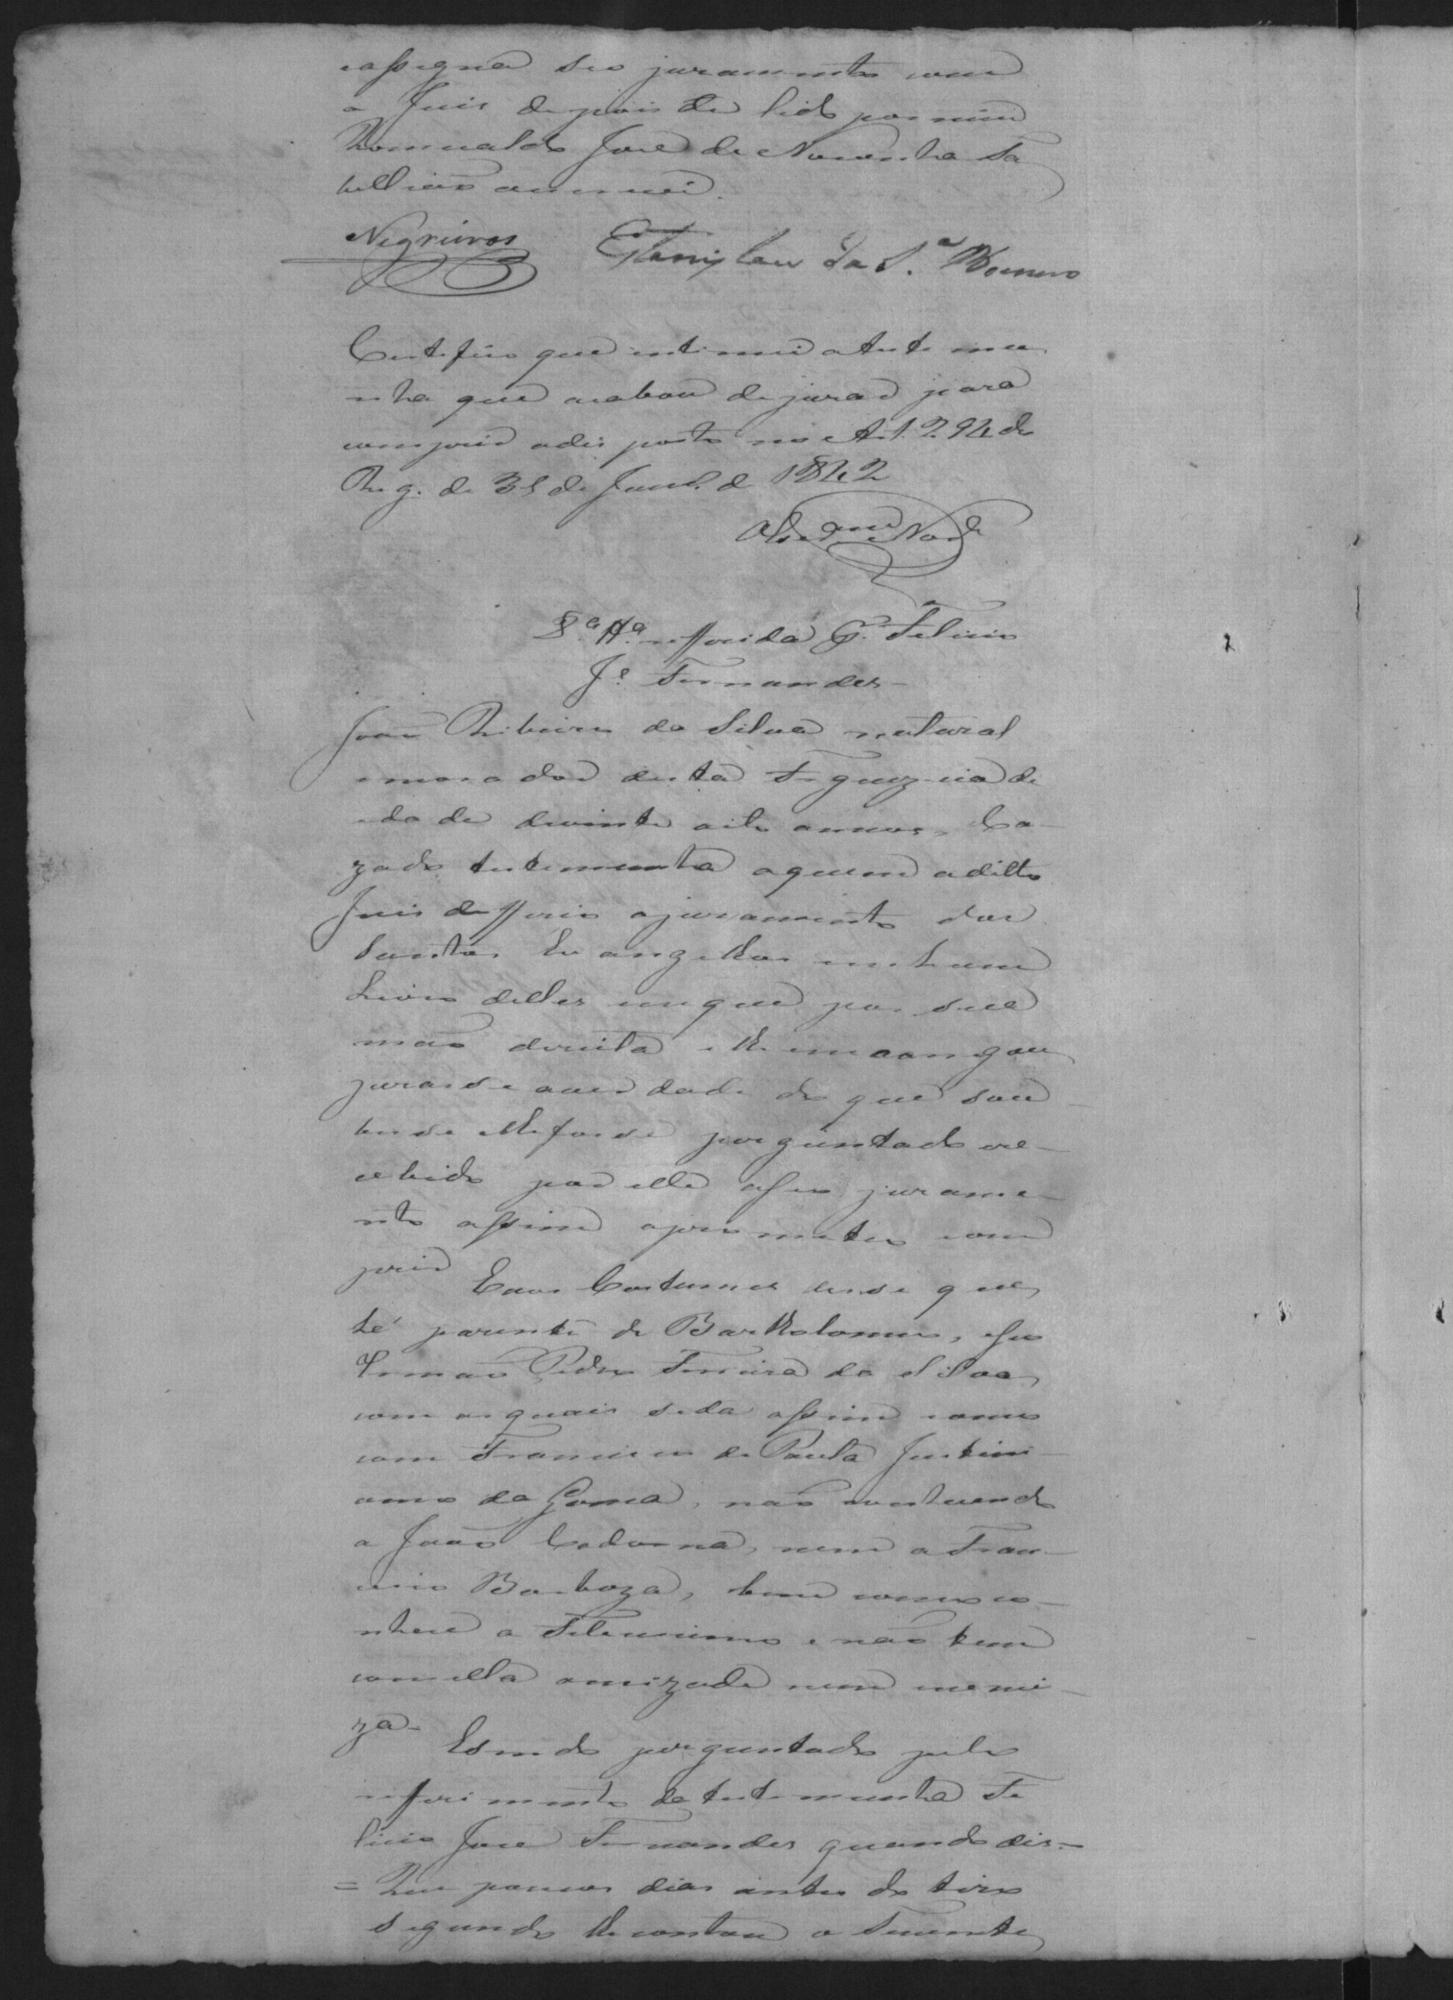 eassegna seo juramento com
o Juis depois de lido por mim
Romualdo José de Noronha Ta
bellião annuei.
Negreiros Estanislau da S.ª Romero
Certefico que intimei a teste mu
nha que acabou de jurar para
comprir adisposto no Art. 294 do
Reg. de 31 de Janr.º de 1842
§.ª tt.ª refferida p. Felicio
J.e Fernandes
João Ribeiro da Silva natural
emorador desta Freguezia de
idade de vinte oito annos, Ca-
zado testemunha aquem adito
Juis defferio ojuramento dos
Santos Evangelhos em hum
Livro delles emque pos sua
mão direita elhe encarregou
jurasse averdade do que sou
besse elhefosse perguntado ere-
cebido por elle ofeo jurame-
nto assim oprometeo com
prir
Eaos Costumes disse que
hé parente de Bartholomeu, eseo
Irmao Pedro Ferreira da Silva
com osquais seda assim como
com Francisco de Paula Justini-
ano da Gama, não conhecendo
a João Cadorna, nem a Fran-
cisco Barboza, bem como co-
nhece a Filesmino enão tem
comella amizade nem inimi-
za-
Esendo perguntado pelo
referimento da testemunha Fe
licio José Fernandes quando diz-
= Que poucos dias antes do tiro
segundo lhe contou o Tenente